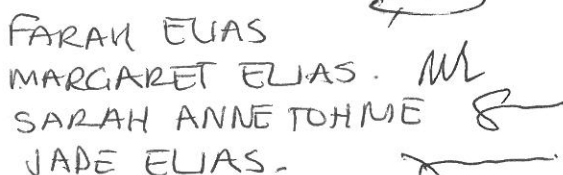 FARAH ELIAS
MARGARET ELIAS.
SARAH ANNE TOHME
JADE ELIAS.